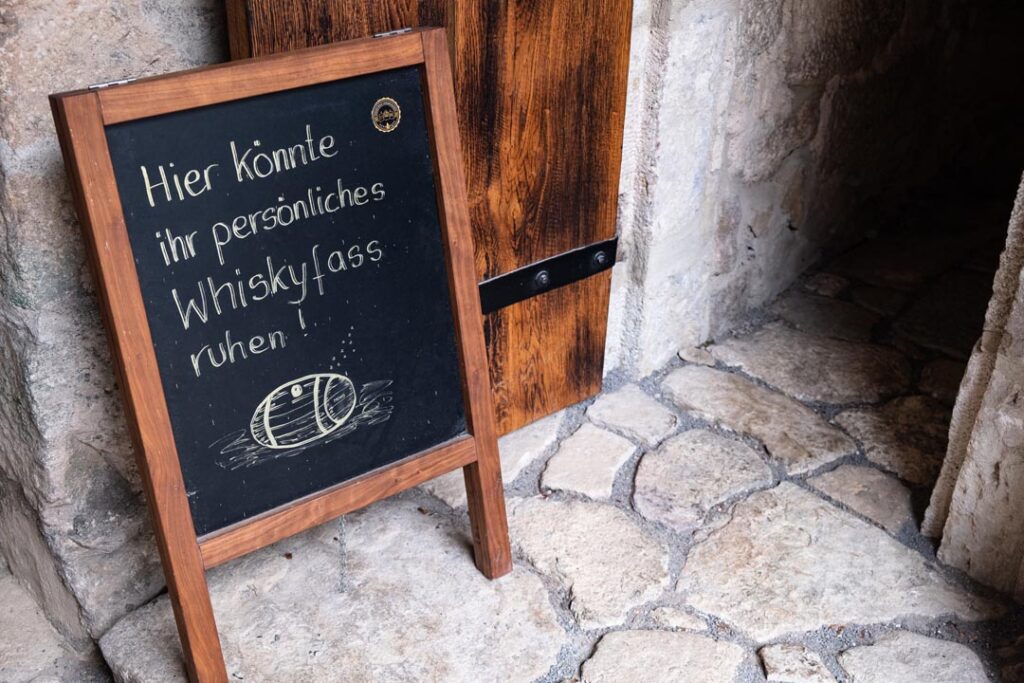 Hier könnte
ihr persönliches
Whiskyfass
ruhen!